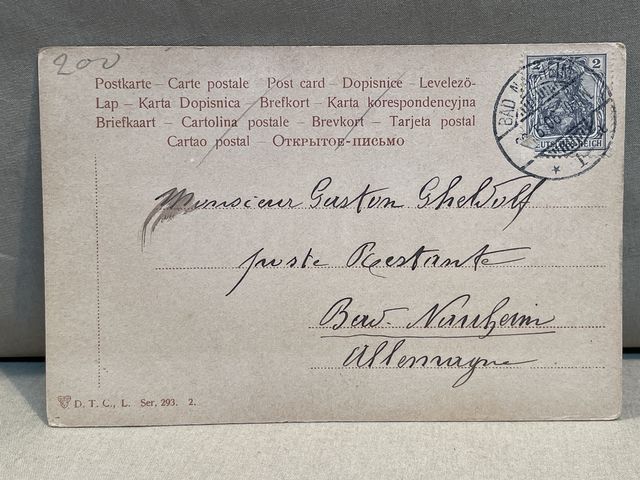 200
Postkarte – Carte postale Post card – Dopisnice – Levelezö-
Lap – Karta Dopisnica – Brefkort – Karta korespondencyjna
Briefkaart – Cartolina postale – Brevkort – Tarjeta postal
Cartao postal – Открытое-письмо
2 2
BAD
REICH
1
Monsieur Gaston Gheldolf
poste Restante
Bad-Nauheim
Allemagne
D. T. C., L. Ser. 293. 2.